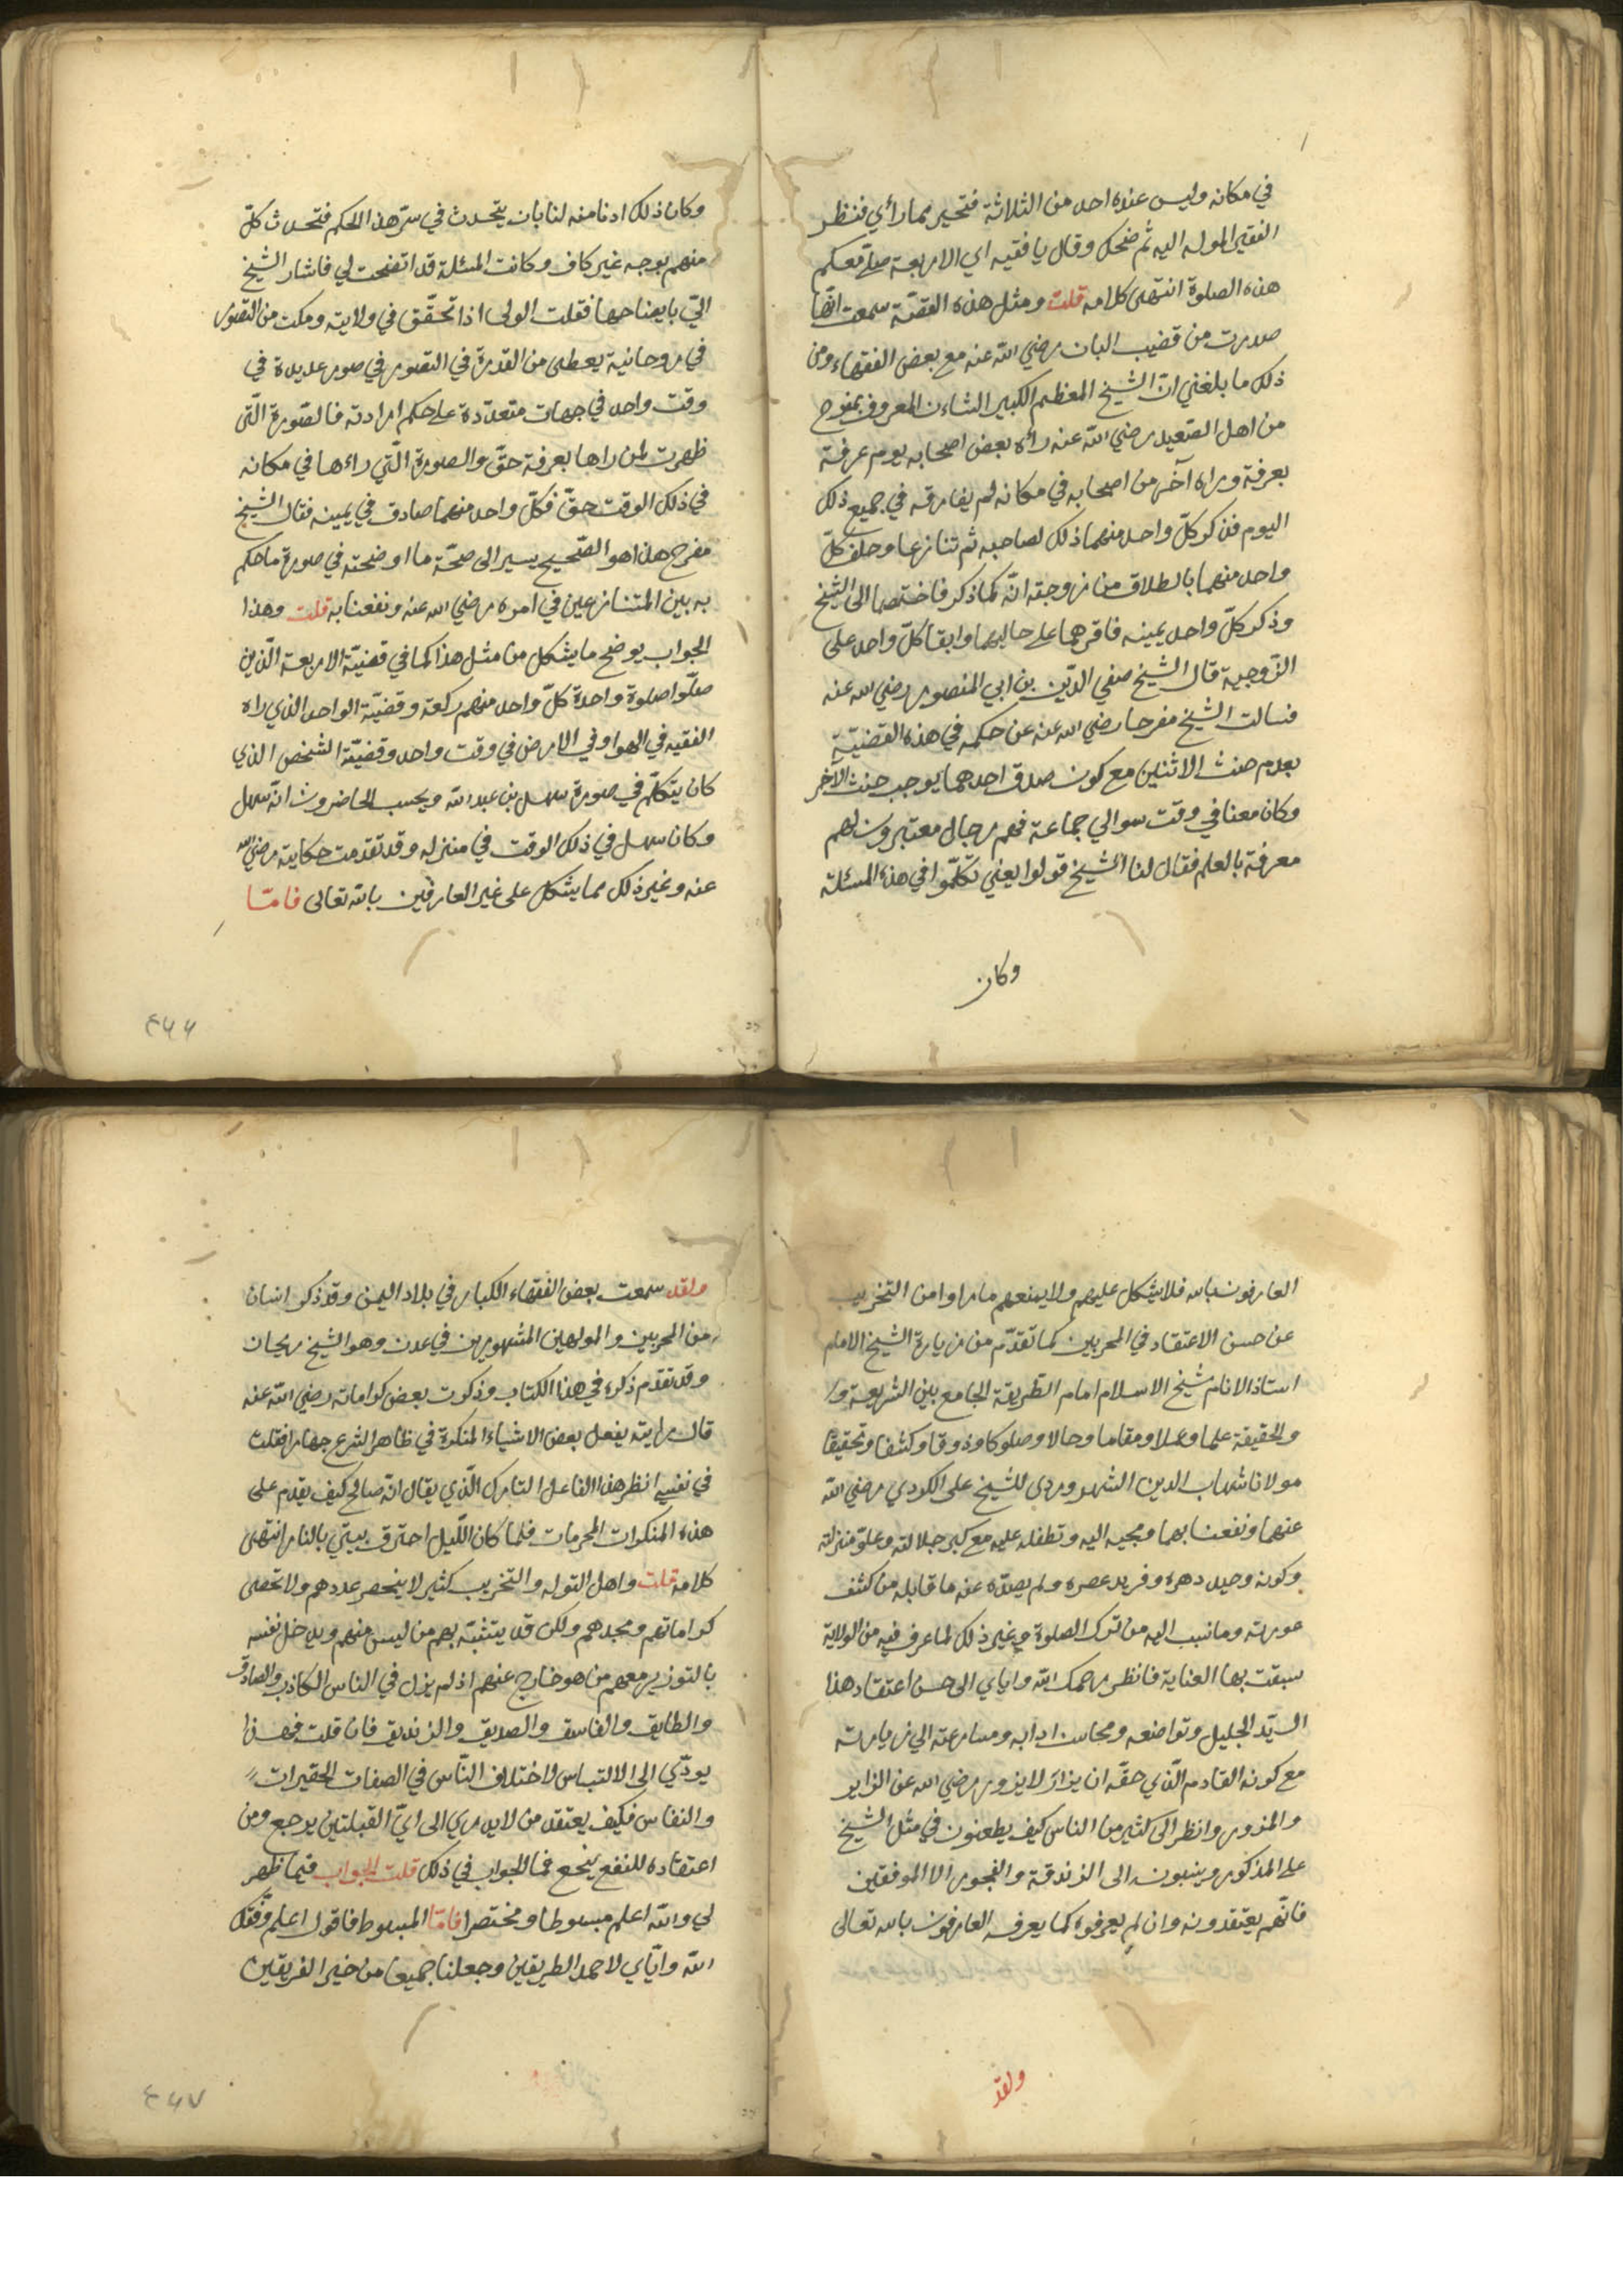 في مكانه وليس عنده احد من الثلاثة فتحير مما رأي فنظر
الفقير الموله اليه ثم ضحك وقال يا فقيه اي الاربعة صلى معكم
هذه الصلوة انتهى كلامه قلت ومثل هذه القصّة سمعت انّها
صدرت من قضيب البان رضي الله عنه مع بعض الفقهاء ومن
ذلك ما بلغني انّ الشيخ المعظم الكبير الشاءن المعروف بمفرج
من اهل الصّعيد رضي الله عنه رأه بعض اصحابه يوم عرفة
بعرفة وراه آخر من اصحابه في مكانه لم يفارقه في جميع ذلك
اليوم فذكر كلّ واحد منهما ذلك لصاحبه ثم تنازعا وحلف كلّ
واحد منهما بالطلاق من زوجته انّه كما ذكر فاختصما الى الشيخ
وذكر كلّ واحد يمينه فاقرهما على حالهما وابقا كلّ واحد على
الزّوجية قال الشيخ صفي الدّين بن ابي المنصور رضي الله عنه
فسالت الشيخ مفرحا رضي الله عنه عن حكمه في هذه القضيّة
بعدم حنث الاثنين مع كون صدق احدهما يوجب حنث الآخر
وكان معنا في وقت سوالي جماعة فهم رجال معتبرون لهم
معرفة بالعلم فقال لنا الشيخ قولوا يعني تكلّموا في هذه المسئلة
وكان
وكان ذلك اذنا منه لنا بان يتحدث في سرّ هذا الحكم فتحدث كلّ
منهم بوجه غير كاف وكانت المسئلة قد اتضحت لي فاشار الشيخ
اليّ بايضاحها فقلت الولى اذا تحقّق في ولايته ومكن من التصوّر
في روحانية يعطى من القدرة في التصور في صور عديدة في
وقت واحد في جهات متعدّدة على حكم ارادته فالصّورة الّتى
ظهرت لمن راها بعرفة حقّ والصورة الّتي راءها في مكانه
في ذلك الوقت حقّ فكلّ واحد منهما صادق في يمينه فقال الشيخ
مفرح هذا هو الصّحيح يسير الى صحّة ما اوضحته في صورة ما حكم
به بين المتنازعين في امره رضي الله عنه ونفعنا به قلت وهذا
الجواب يوضح ما يشكل من مثل هذا كما في قضيّة الاربعة الّذين
صلّوا صلوة واحدة كلّ واحد منهم ركعة وقضيّة الواحد الذي راه
الفقيه في الهوا وفي الارض في وقت واحد وقضيّة الشخص الذي
كان يتكلّم في صورة سهل بن عبد الله ويحسب الحاضرون انّه سهل
وكان سهل في ذلك الوقت في منزله وقد تقدمت حكايته رضي الله
عنه وغير ذلك مما يشكل على غير العارفين بالله تعالى فامّا
٤٦٦
العارفون بالله فلا يشكل عليهم ولا يمنعهم ما راوا من التخريب
عن حسن الاعتقاد في المخربين كما تقدّم من زيارة الشيخ الامام
استاذ الانام شيخ الاسلام امام الطّريقة الجامع بين الشريعة و
والحقيقة علما وعملا ومقاما وحالا وصلوكا وذوقا وكشفا وتحقيقا
مولانا شهاب الدين الشهروردى للشيخ على الكردي رضي الله
عنهما ونفعنا بهما ومجيه اليه وتطفله عليه مع كبر جلالته وعلوّ منزلته
وكونه وحيد دهره وفريد عصره ولم يصدّه عنه ما قابله من كشف
عورته وما نسب اليه من ترك الصلوة وغير ذلك لما عرف فيه من الولاية
سبقت بها العناية فانظر رحمك الله واياي الى حسن اعتقاد هذا
السيّد الجليل وتواضعه ومحاسن ادابه ومسارعته الي زيارته
مع كونه القادم الّذي حقّه ان يزار لا يزور رضي الله عن الزاير
والمزور وانظر الى كثير من الناس كيف يطعنون في مثل الشيخ
على المذكور وينسبونه الى الزندقة والفجور الا الموفقين
فانّهم يعتقدونه وان لم يعرفوه كما يعرفه العارفون بالله تعالى
ولقد
ولقد سمعت بعض الفقهاء الكبار في بلاد اليمن وقد ذكر انسان
من المخربين والمولهين المشهورين في عدن وهو الشيخ ريحان
وقد تقدّم ذكره في هذا الكتاب وذكرت بعض كراماته رضي الله عنه
قال رايته يفعل بعض الاشياء المنكرة في ظاهر الشرع جهارا فقلت
في نفسي انظر هذا الفاعل التارك الّذي يقال انّه صالح كيف يقدم على
هذه المنكرات المحرمات فلما كان اللّيل احترق بيتي بالنار انتهى
كلامه قلت واهل التوله والتخريب كثير لا ينحصر عددهم ولا تحصى
كراماتهم ومجدهم ولكن قد يتشبّه بهم من ليس منهم ويدخل نفسه
بالتوزير معهم من هو خارج عنهم اذ لم يزل في الناس الكاذب والصادق
والطايق والفاسق والصديق والزنديق فان قلت فهذا
يودّي الى الالتباس لاختلاف النّاس في الصفات الحقيرات
والنفاس فكيف يعتقد من لا يدري الى ايّ القبلتين يرجع ومن
اعتقاده للنفع ينجع فما الجواب في ذلك قلت الجواب فيما ظهر
لي والله اعلم مبسوطا ومختصرا فامّا المبسوط فاقول اعلم وفّقك
الله وايّاي لاحمد الطريقين وجعلنا جميعا من خير الفريقين
٤٦٧